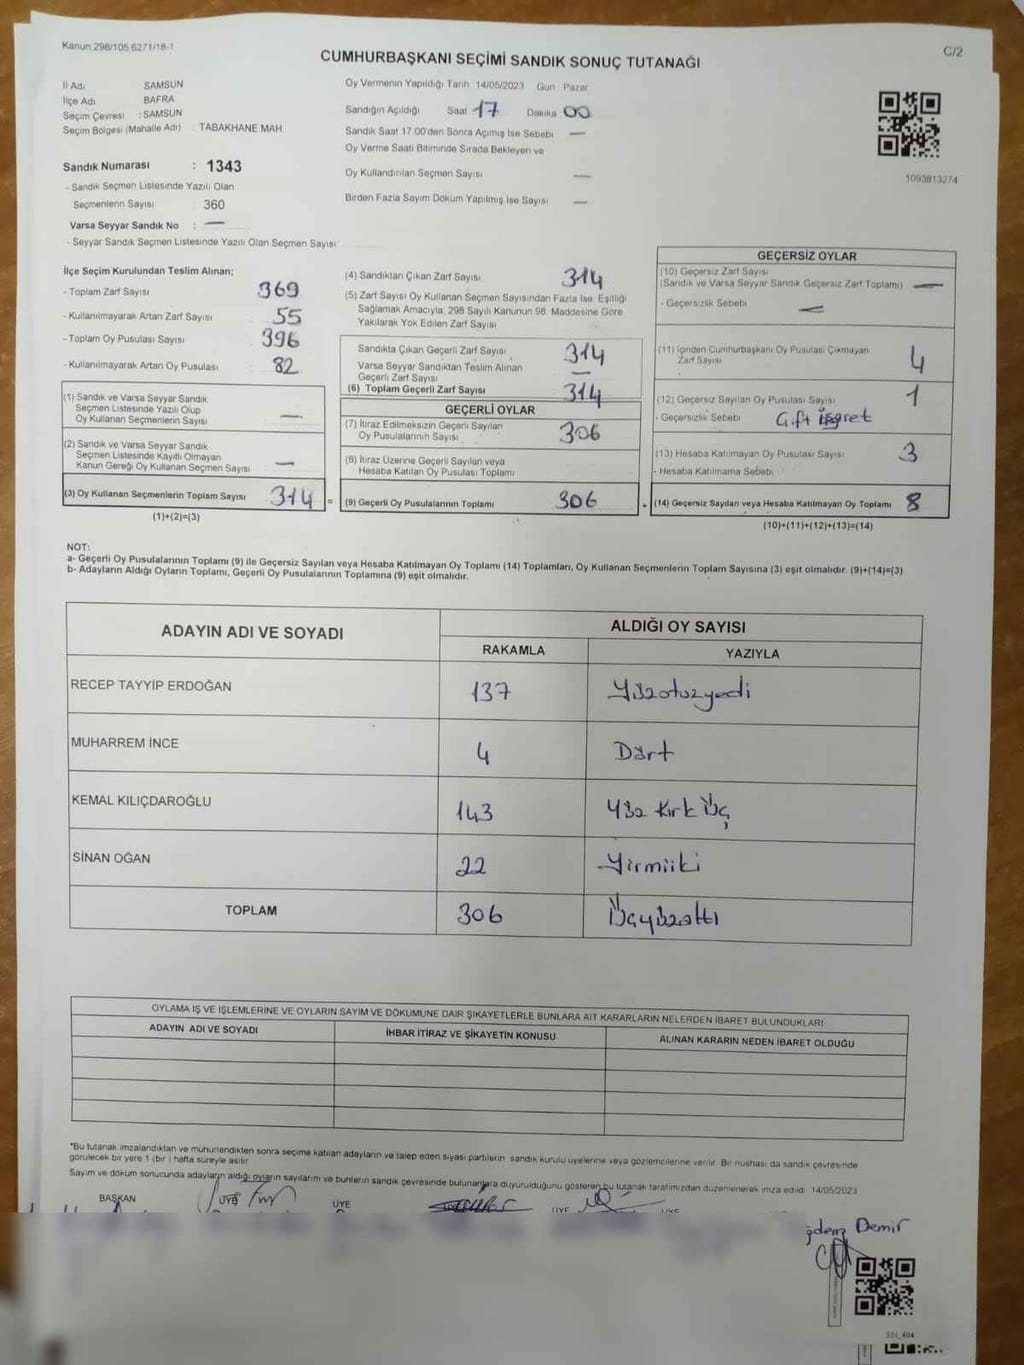 Kanun 298/105,6271/18-1
C/2
CUMHURBAŞKANI SEÇİMİ SANDIK SONUÇ TUTANAĞI
İl Adı SAMSUN
İlçe Adı BAFRA
Seçim Çevresi : SAMSUN
Seçim Bölgesi (Mahalle Adı) TABAKHANE MAH
Sandık Numarası : 1343
- Sandık Seçmen Listesinde Yazılı Olan
Seçmenlerin Sayısı 360
Varsa Seyyar Sandık No : —
- Seyyar Sandık Seçmen Listesinde Yazılı Olan Seçmen Sayısı
Oy Vermenin Yapıldığı Tarih 14/05/2023 Gün Pazar
Sandığın Açıldığı Saat 17 Dakika 00
Sandık Saat 17.00'den Sonra Açımış İse Sebebi —
Oy Verme Saati Bitiminde Sırada Bekleyen ve
Oy Kullandırılan Seçmen Sayısı —
Birden Fazla Sayım Döküm Yapılmış İse Sayısı —
1093813274
İlçe Seçim Kurulundan Teslim Alınan;
- Toplam Zarf Sayısı 369
- Kullanılmayarak Artan Zarf Sayısı 55
- Toplam Oy Pusulası Sayısı 396
- Kullanılmayarak Artan Oy Pusulası 82
(1) Sandık ve Varsa Seyyar Sandık
Seçmen Listesinde Yazılı Olup
Oy Kullanan Seçmenlerin Sayısı —
(2) Sandık ve Varsa Seyyar Sandık
Seçmen Listesinde Kayıtlı Olmayan
Kanun Gereği Oy Kullanan Seçmen Sayısı —
(3) Oy Kullanan Seçmenlerin Toplam Sayısı 314 =
(1)+(2)=(3)
(4) Sandıktan Çıkan Zarf Sayısı 314
(5) Zarf Sayısı Oy Kullanan Seçmen Sayısından Fazla İse, Eşitliği
Sağlamak Amacıyla, 298 Sayılı Kanunun 98. Maddesine Göre
Yakılarak Yok Edilen Zarf Sayısı
Sandıkta Çıkan Geçerli Zarf Sayısı 314
Varsa Seyyar Sandıktan Teslim Alınan
Geçerli Zarf Sayısı —
(6) Toplam Geçerli Zarf Sayısı 314
GEÇERLİ OYLAR
(7) İtiraz Edilmeksizin Geçerli Sayılan
Oy Pusulalarının Sayısı 306
(8) İtiraz Üzerine Geçerli Sayılan veya
Hesaba Katılan Oy Pusulası Toplamı
(9) Geçerli Oy Pusulalarının Toplamı 306 +
GEÇERSİZ OYLAR
(10) Geçersiz Zarf Sayısı
(Sandık ve Varsa Seyyar Sandık Geçersiz Zarf Toplamı) —
- Geçersizlik Sebebi —
(11) İçinden Cumhurbaşkanı Oy Pusulası Çıkmayan
Zarf Sayısı 4
(12) Geçersiz Sayılan Oy Pusulası Sayısı 1
- Geçersizlik Sebebi Çift işaret
(13) Hesaba Katılmayan Oy Pusulası Sayısı 3
- Hesaba Katılmama Sebebi
(14) Geçersiz Sayılan veya Hesaba Katılmayan Oy Toplamı 8
(10)+(11)+(12)+(13)=(14)
NOT:
a- Geçerli Oy Pusulalarının Toplamı (9) ile Geçersiz Sayılan veya Hesaba Katılmayan Oy Toplamı (14) Toplamları, Oy Kullanan Seçmenlerin Toplam Sayısına (3) eşit olmalıdır. (9)+(14)=(3)
b- Adayların Aldığı Oyların Toplamı, Geçerli Oy Pusulalarının Toplamına (9) eşit olmalıdır.
ADAYIN ADI VE SOYADI
ALDIĞI OY SAYISI
RAKAMLA YAZIYLA
RECEP TAYYİP ERDOĞAN 137 Yüzotuzyedi
MUHARREM İNCE 4 Dört
KEMAL KILIÇDAROĞLU 143 Yüz Kırk Üç
SİNAN OĞAN 22 Yirmiiki
TOPLAM 306 Üçyüzaltı
OYLAMA İŞ VE İŞLEMLERİNE VE OYLARIN SAYIM VE DÖKÜMÜNE DAİR ŞİKAYETLERLE BUNLARA AİT KARARLARIN NELERDEN İBARET BULUNDUKLARI
ADAYIN ADI VE SOYADI İHBAR İTİRAZ VE ŞİKAYETİN KONUSU ALINAN KARARIN NEDEN İBARET OLDUĞU
*Bu tutanak imzalandıktan ve mühürlendikten sonra seçime katılan adayların ve talep eden siyasi partilerin sandık kurulu üyelerine veya gözlemcilerine verilir. Bir nüshası da sandık çevresinde
görülecek bir yere 1 (bir) hafta süreyle asılır.
Sayım ve döküm sonucunda adayların aldığı oyların sayılarını ve bunların sandık çevresinde bulunanlara duyurulduğunu gösteren bu tutanak tarafımızdan düzenlenerek imza edildi. 14/05/2023
BAŞKAN ÜYE ÜYE ÜYE ÜYE
Demir